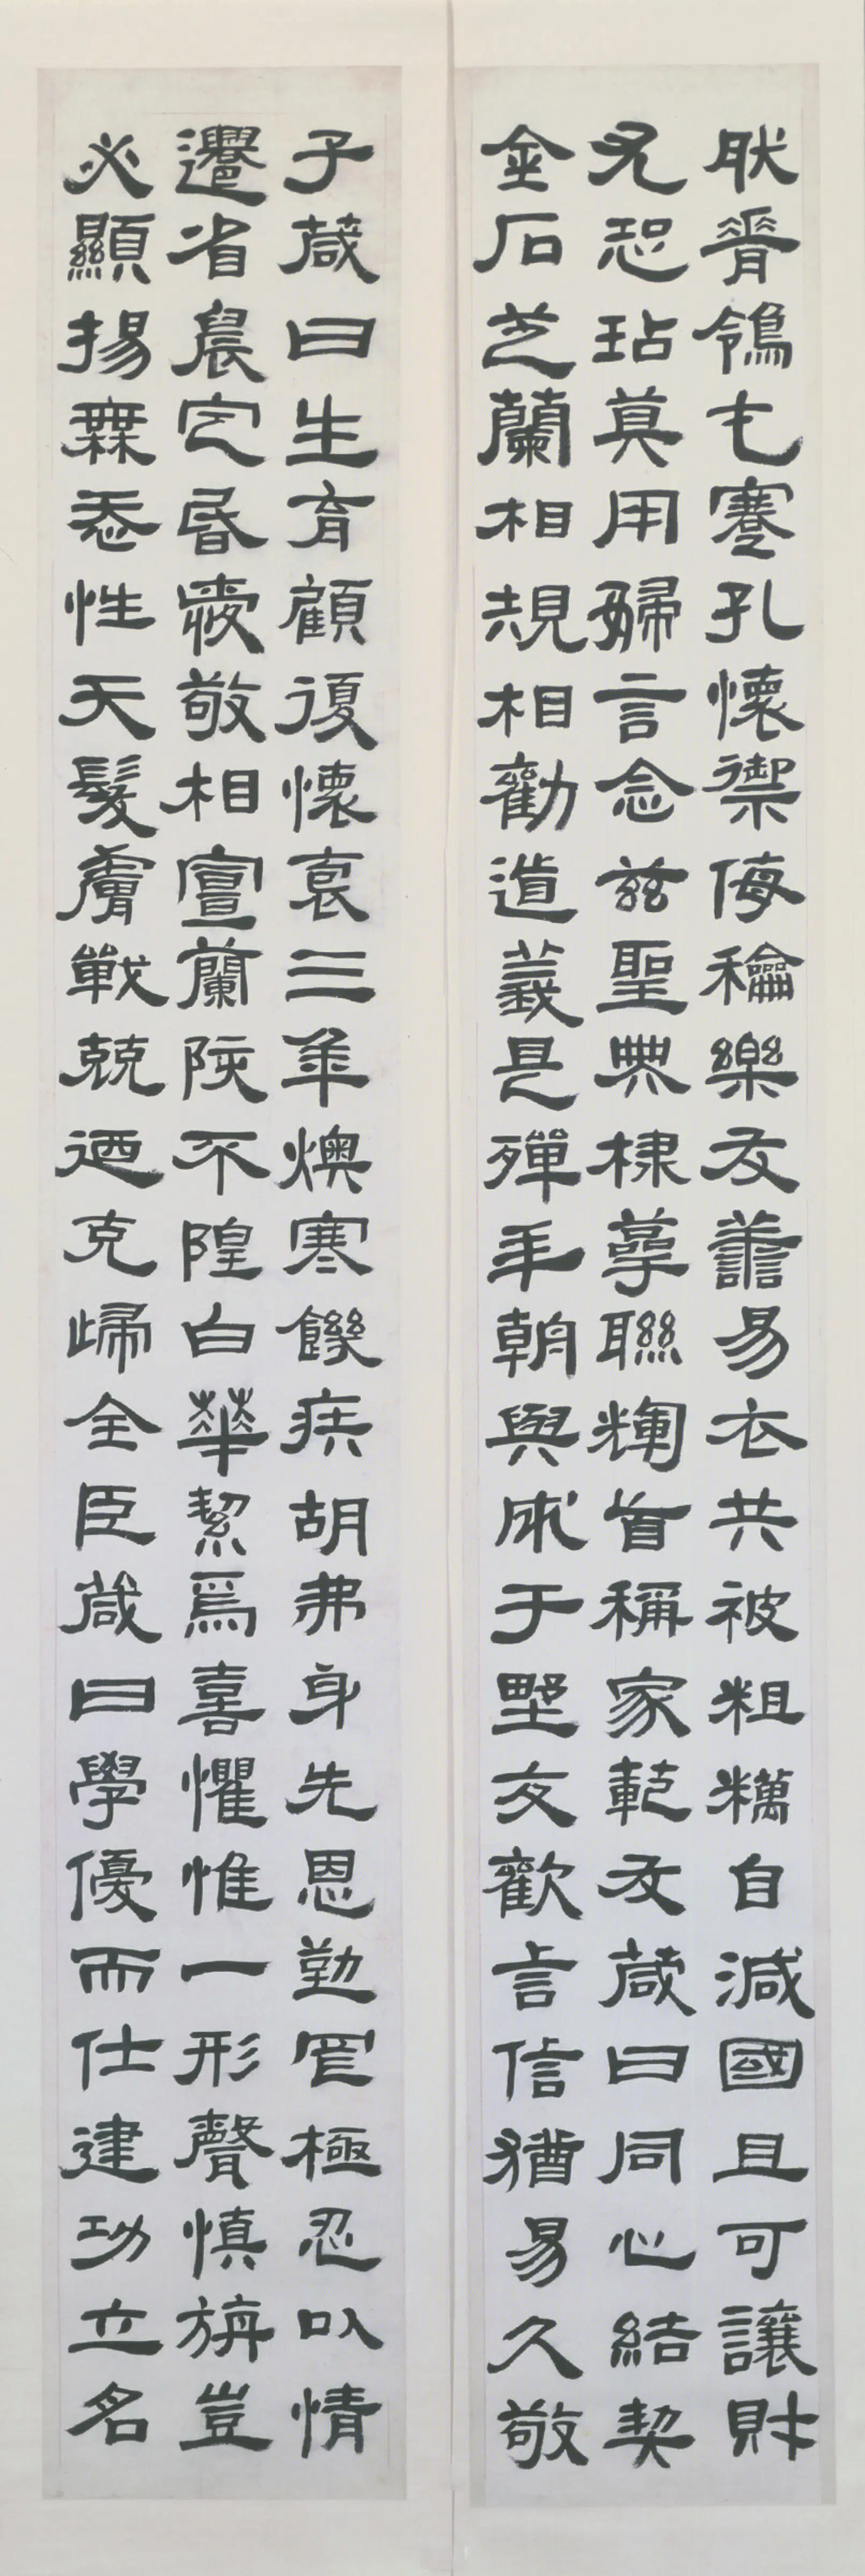 肰脊鴒乇蹇孔懷禦侮龢樂友譱易衣共被粗糲自減國且可讓財
尤恐玷莫用婦言念茲聖典棣萼聯輝首稱家範友葴曰同心結契
金石芝蘭相規相勸道義是殫手朝與成于野友歡言信猶易久敬
子葴曰生育顧復懷裏三年燠寒饑疾胡弗身先恩勤罔極忍以情
遷省晨定昏愛敬相宣蘭陔不隍白華絜焉喜懼惟一形聲慎旃豈
必顯揚無忝性天髮膚戰兢迺克歸全臣葴曰學優而仕建功立名